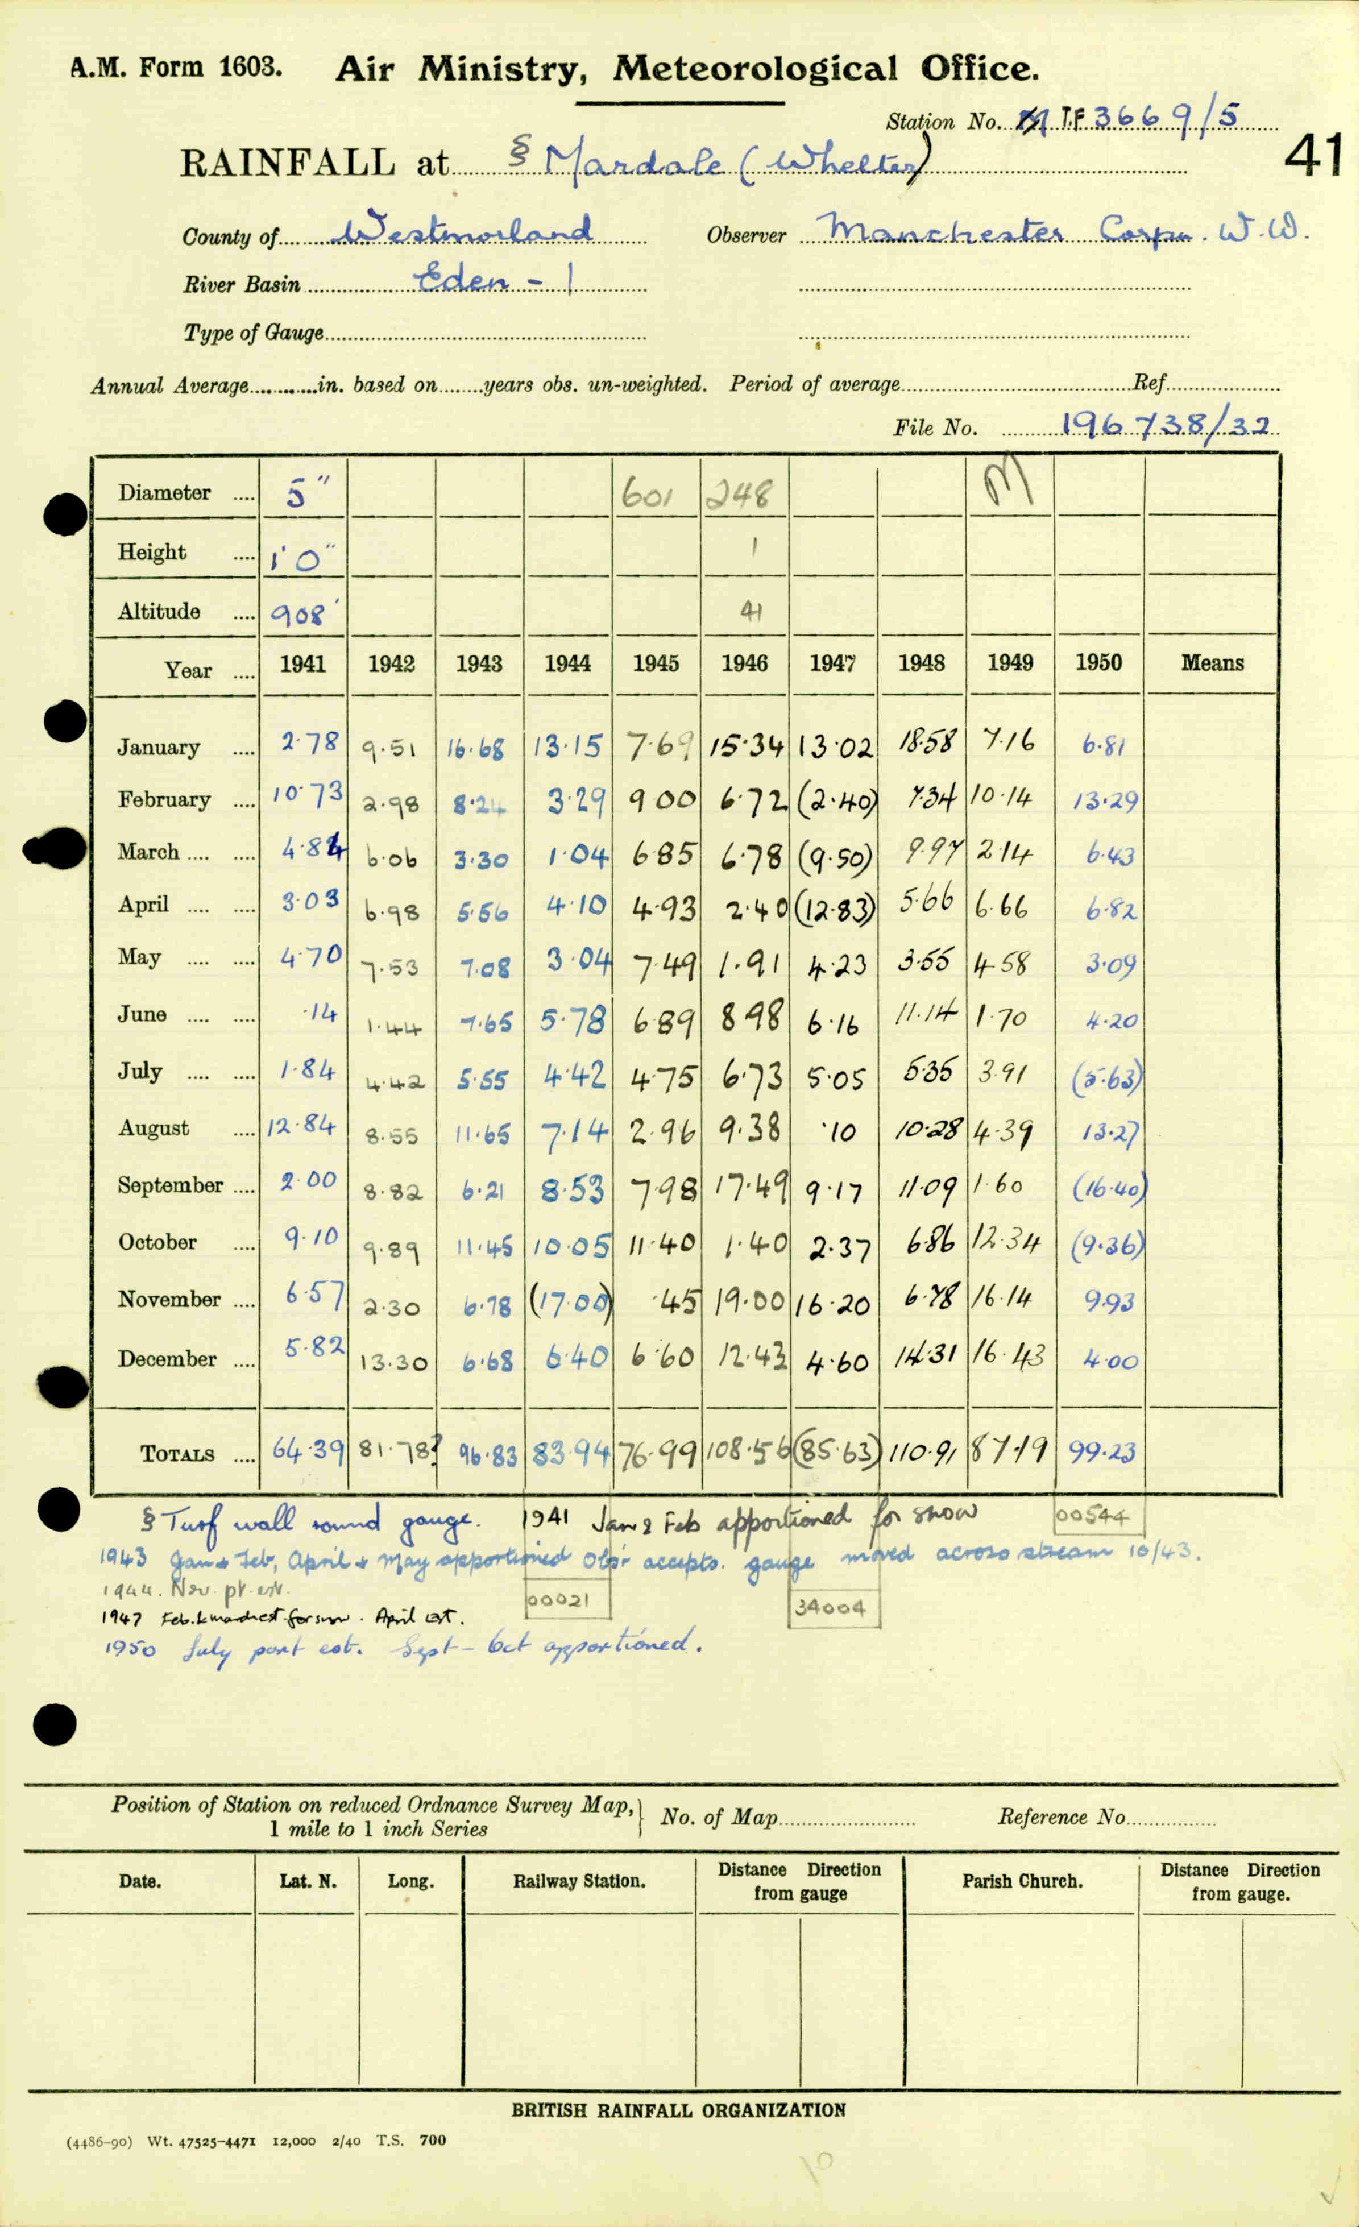 A.M. Form 1603. Air Ministry, Meteorological Office.
Station No. T.F 3669/5
41
RAINFALL at § Mardale (Whelter)
County of Westmorland Observer Manchester Corpn. W.W.
River Basin Eden - 1
Type of Gauge
Annual Average in. based on years obs. un-weighted. Period of average Ref
File No. 196738/32
Diameter 5" 601 248 M
Height 1'0" 1
Altitude 908' 41
Year 1941 1942 1943 1944 1945 1946 1947 1948 1949 1950 Means
January 2.78 9.51 16.68 13.15 7.69 15.34 13.02 18.58 7.16 6.81
February 10.73 2.98 8.24 3.29 9.00 6.72 (2.40) 7.34 10.14 13.29
March 4.84 6.06 3.30 1.04 6.85 6.78 (9.50) 9.97 2.14 6.43
April 3.03 6.98 5.56 4.10 4.93 2.40 (12.83) 5.66 6.66 6.82
May 4.70 7.53 7.08 3.04 7.49 1.91 4.23 3.55 4.58 3.09
June .14 1.44 7.65 5.78 6.89 8.98 6.16 11.14 1.70 4.20
July 1.84 4.42 5.55 4.42 4.75 6.73 5.05 5.35 3.91 (5.63)
August 12.84 8.55 11.65 7.14 2.96 9.38 .10 10.28 4.39 13.27
September 2.00 8.82 6.21 8.53 7.98 17.49 9.17 11.09 1.60 (16.40)
October 9.10 9.89 11.45 10.05 11.40 1.40 2.37 6.86 12.34 (9.36)
November 6.57 2.30 6.78 (17.00) .45 19.00 16.20 6.78 16.14 9.93
December 5.82 13.30 6.68 6.40 6.60 12.43 4.60 14.31 16.43 4.00
TOTALS 64.39 81.78? 96.83 83.94 76.99 108.56 (85.63) 110.91 87.19 99.23
§ Turf wall round gauge. 1941 Jan & Feb apportioned for snow 00544
1943 Jan & Feb, April & May apportioned Obsr accepts. gauge moved across stream 10/43.
1944. Nov. pt. est. 00021 34004
1947 Feb. & march est for snow. April est.
1950 July part est. Sept - Oct apportioned.
Position of Station on reduced Ordnance Survey Map,
1 mile to 1 inch Series No. of Map Reference No.
Date. Lat. N. Long. Railway Station. Distance Direction from gauge Parish Church. Distance Direction from gauge.
BRITISH RAINFALL ORGANIZATION
(4486-90) Wt. 47525-4471 12,000 2/40 T.S. 700
10